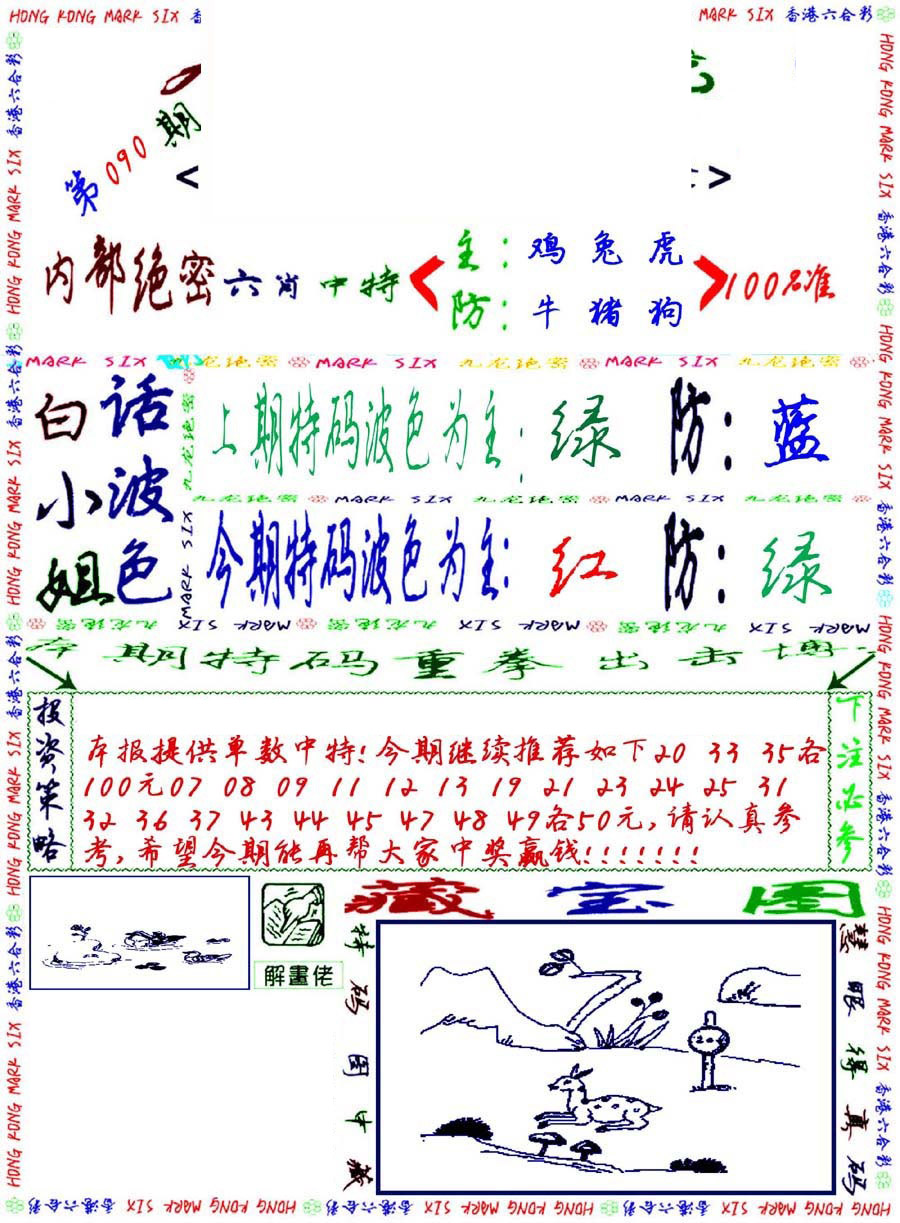 HONG KONG MARK SIX 香
MARK SIX 香港六合彩
第090期
< >
内部绝密六肖中特
主：鸡兔虎
防：牛猪狗
100%准
MARK SIX 九龙绝密 MARK SIX 九龙绝密 MARK SIX 九龙绝密
白话小波姐色
上期特码波色为主：绿 防：蓝
九龙绝密 MARK SIX 九龙绝密 MARK SIX 九龙绝密
今期特码波色为主：红 防：绿
九龙绝密 MARK SIX 九龙绝密 MARK SIX 九龙绝密 MARK SIX
本期特码重拳出击博
投资策略
本报提供单数中特!今期继续推荐如下20 33 35各
100元07 08 09 11 12 13 19 21 23 24 25 31
32 36 37 43 44 45 47 48 49各50元,请认真参
考,希望今期能再帮大家中奖赢钱!!!!!!!
下注必参
解畫佬
藏宝图
特码图中藏
慧眼得真码
HONG KONG MARK SIX 香港六合彩 HONG KONG MARK SIX 香港六合彩 HONG KONG MARK SIX 香港六合彩